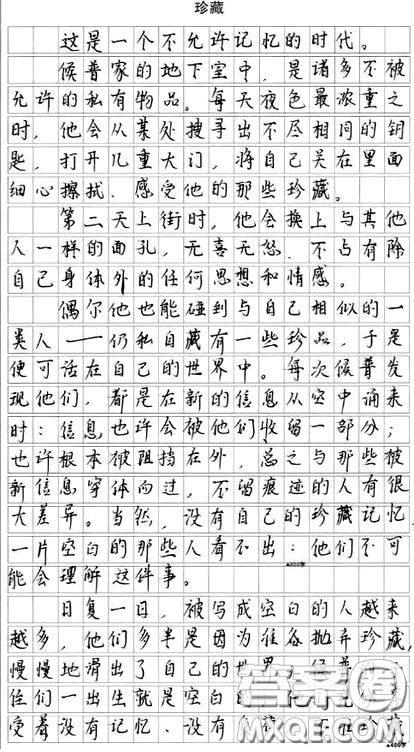 珍藏
这是一个不允许记忆的时代。
候普家的地下室中，是诸多不被
允许的私有物品。每天夜色最浓重之
时，他会从某处搜寻出不尽相同的钥
匙，打开几重大门，将自己关在里面
细心擦拭、感受他的那些珍藏。
第二天上街时，他会换上与其他
人一样的面孔，无喜无怒，不占有除
自己身体外的任何思想和情感。
偶尔他也能碰到与自己相似的一
类人——仍私自藏有一些珍品，于是
便可活在自己的世界中。每次候普发
现他们，都是在新的信息从空中涌来
时：信息也许会被他们收留一部分；
也许根本被阻挡在外，总之与那些被
新信息穿体而过，不留痕迹的人有很
大差异。当然，没有自己的珍藏记忆，
一片空白的那些人看不出：他们不可
能会理解这件事。
日复一日，被写成空白的人越来
越多，他们多半是因为
抛弃珍藏，
慢慢地滑出了自己的世界
一出生就是空白的
受着没有记忆、没有
答案圈
MXQE.COM